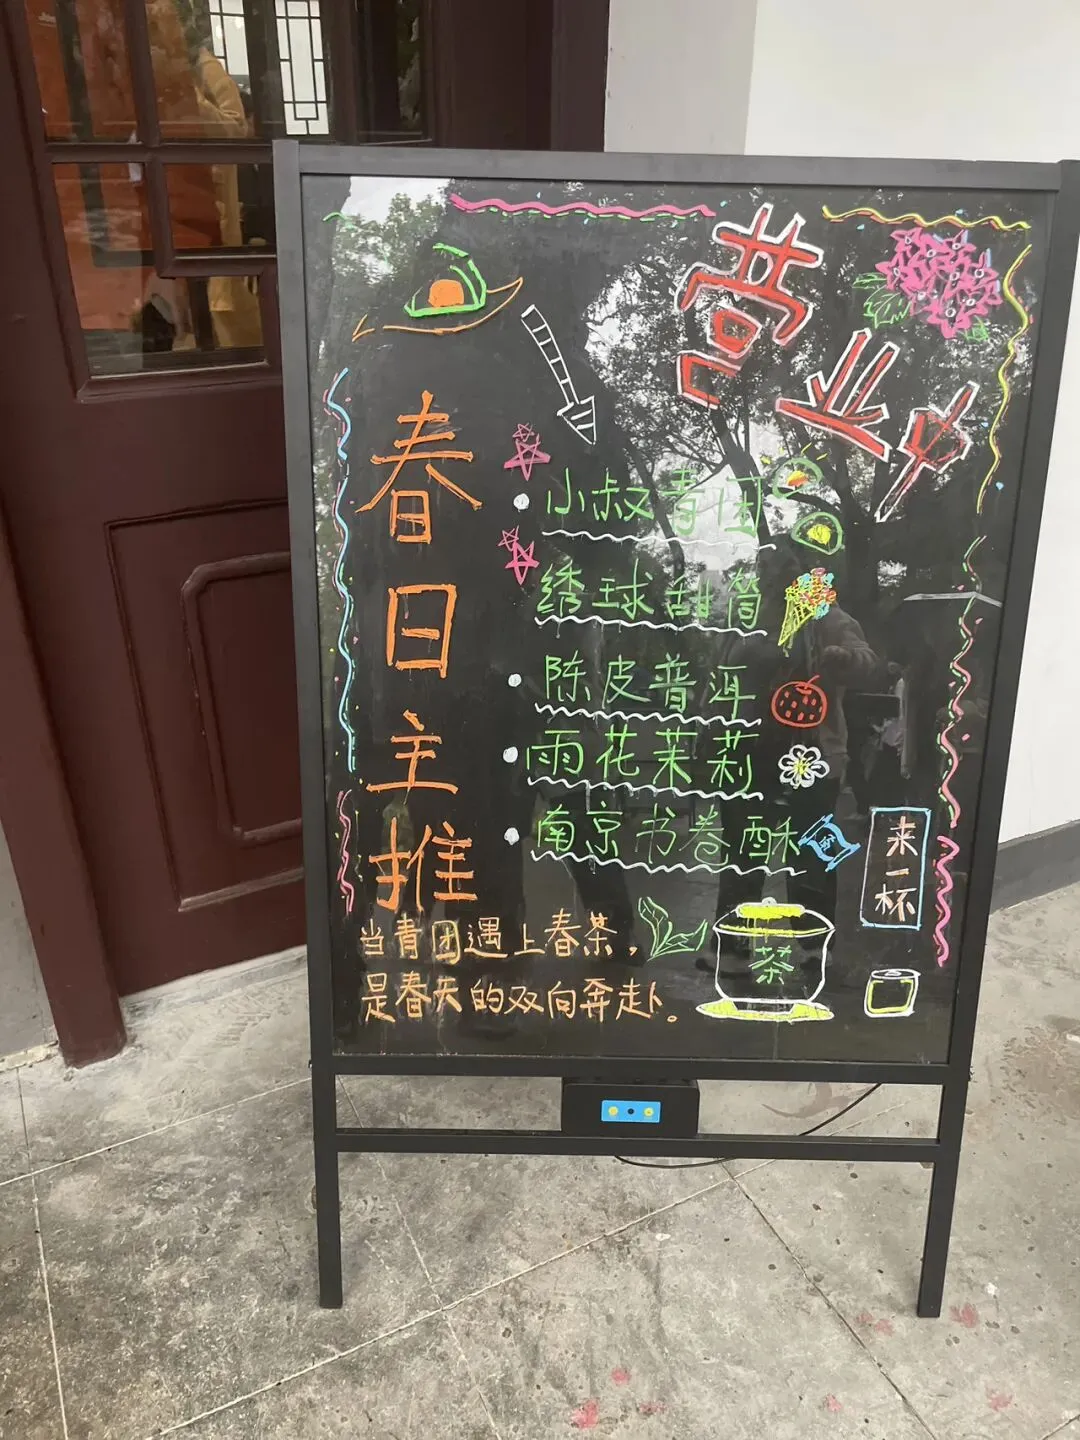 营业中
春日主推
小叔青团
绣球甜筒
陈皮普洱
雨花茉莉
南京书卷酥
来一杯
茶
当青团遇上春茶，
是春天的双向奔赴。